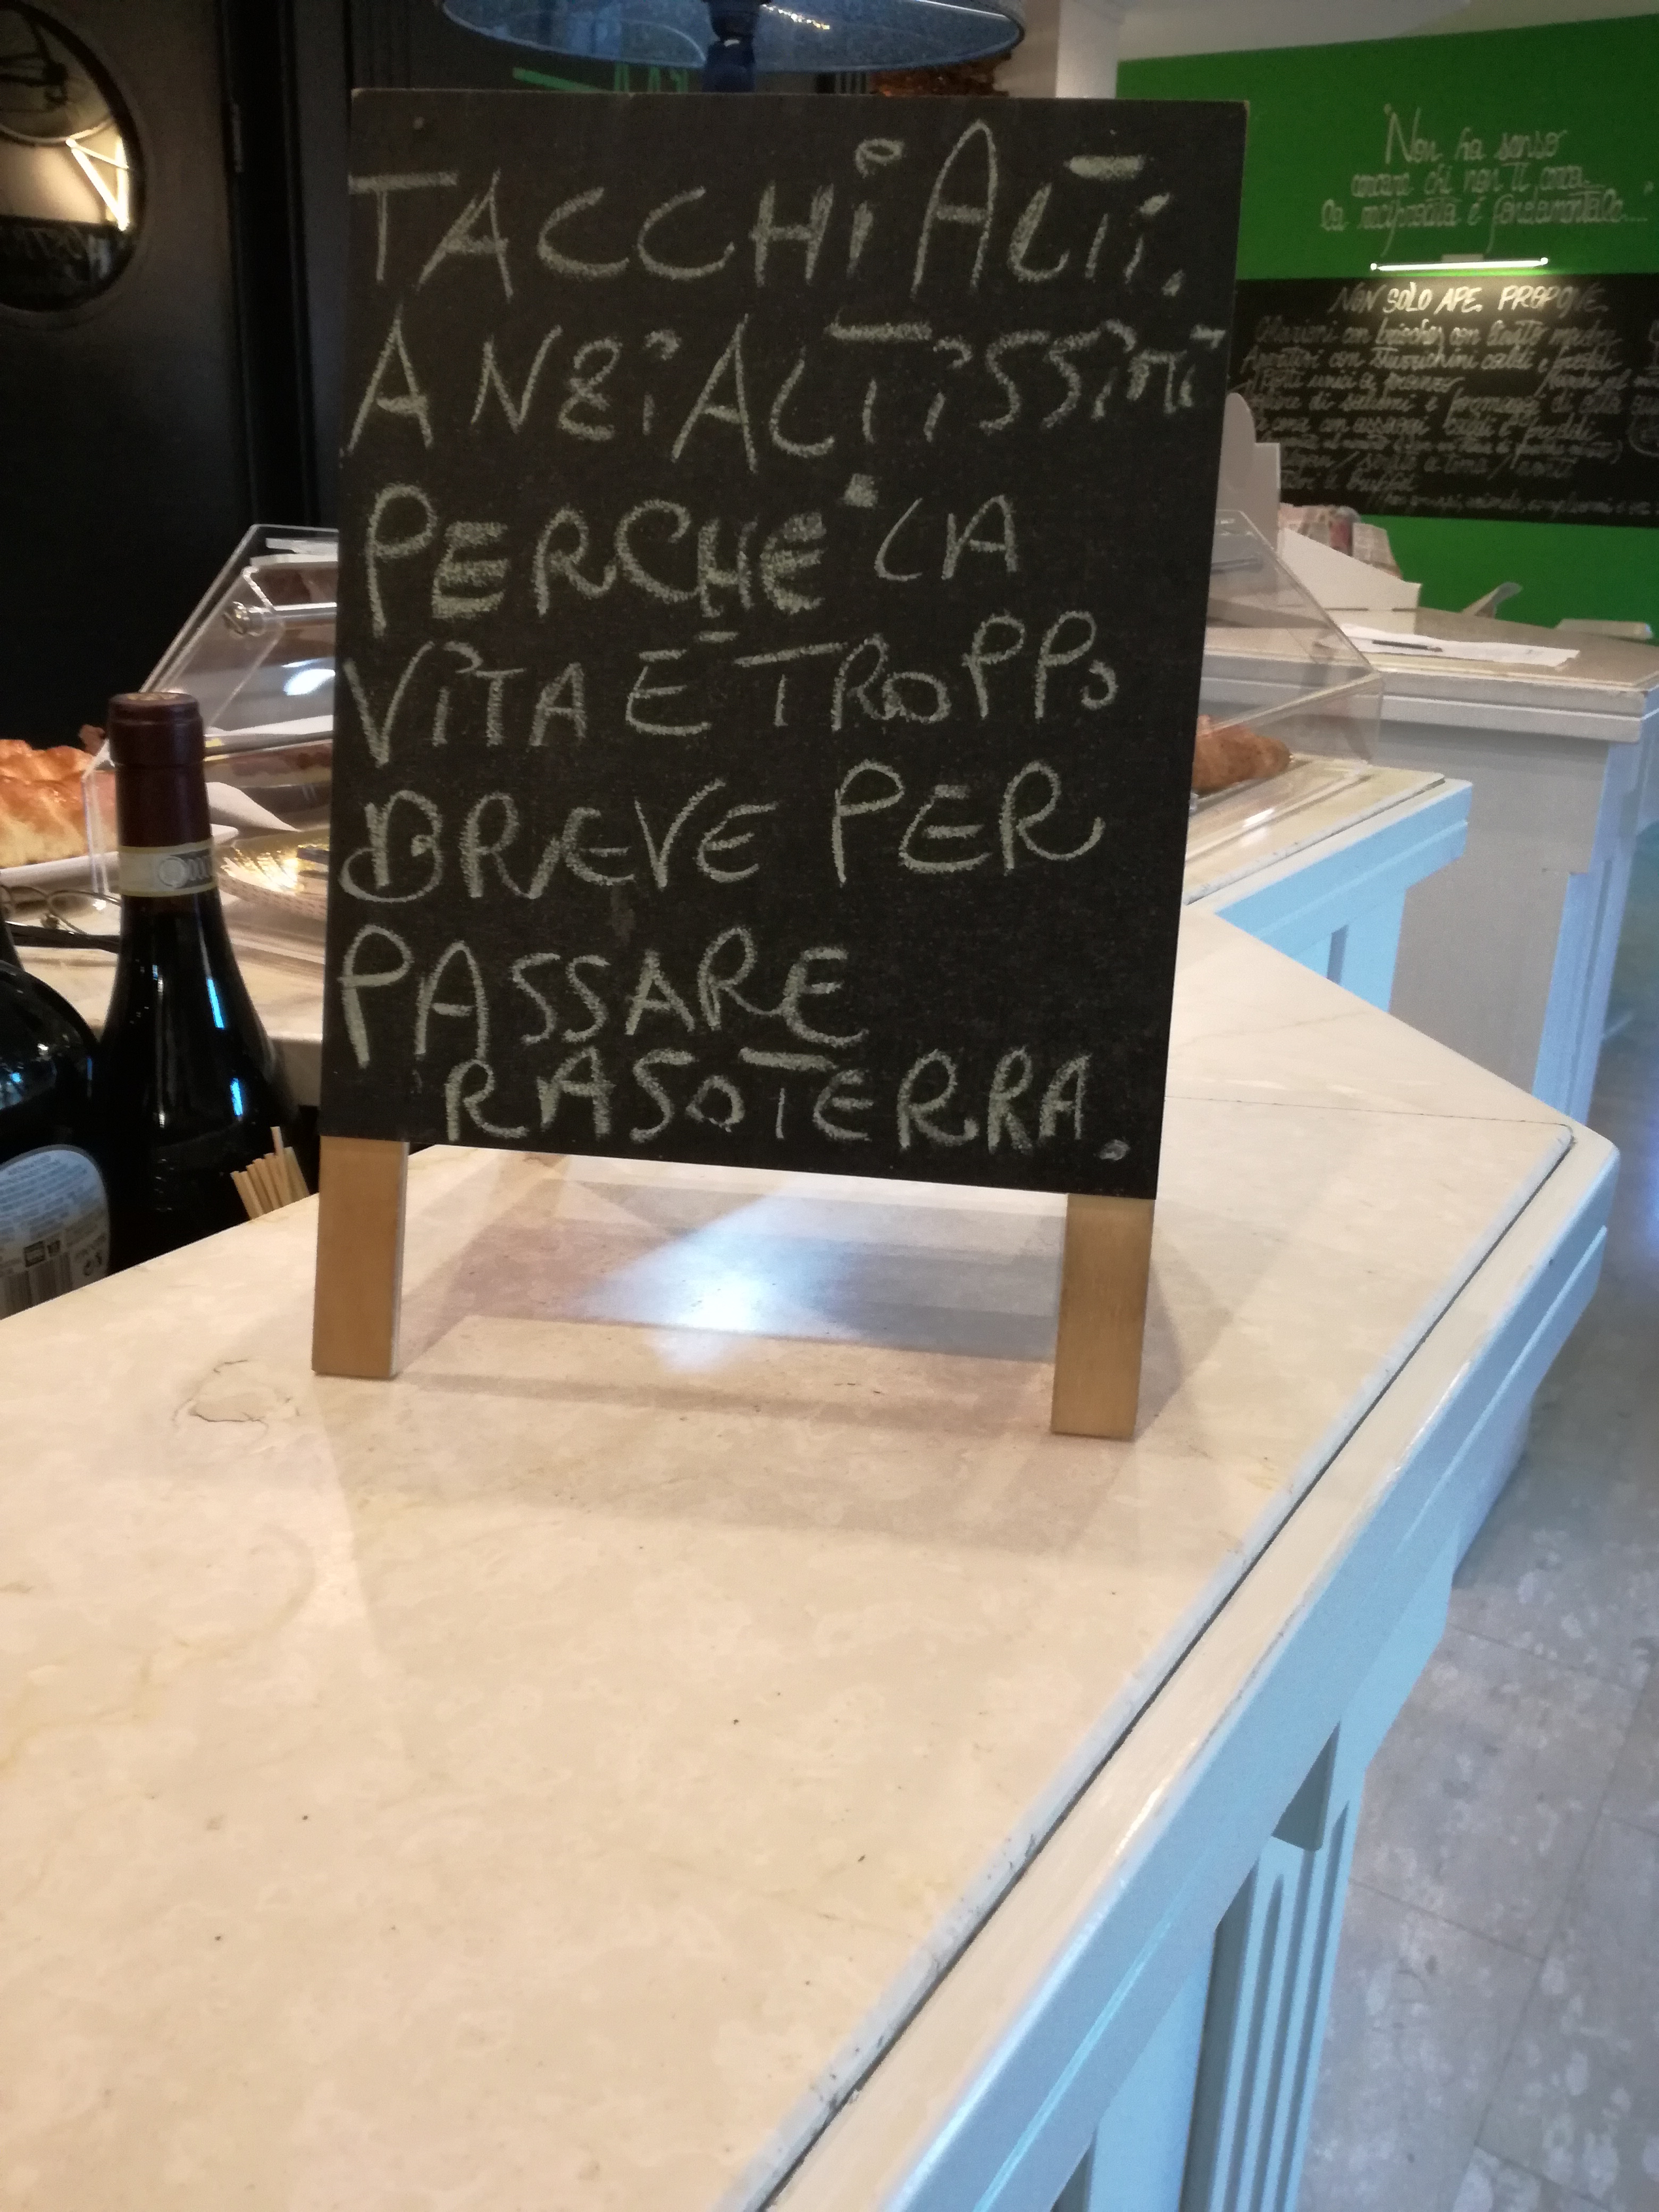 TACCHI ALTI.
ANZI ALTISSIMI
PERCHÉ LA
VITA È TROPPO
BREVE PER
PASSARE
RASOTERRA.
"Non ha senso
cercare chi non ti cerca
la reciprocità è fondamentale..."
NON SOLO APE PROPONE
Colazioni con brioches con lievito madre
Aperitivi con stuzzichini caldi e freddi
Piatti unici a pranzo
di salumi e formaggi di alta
cena con assaggi caldi e freddi